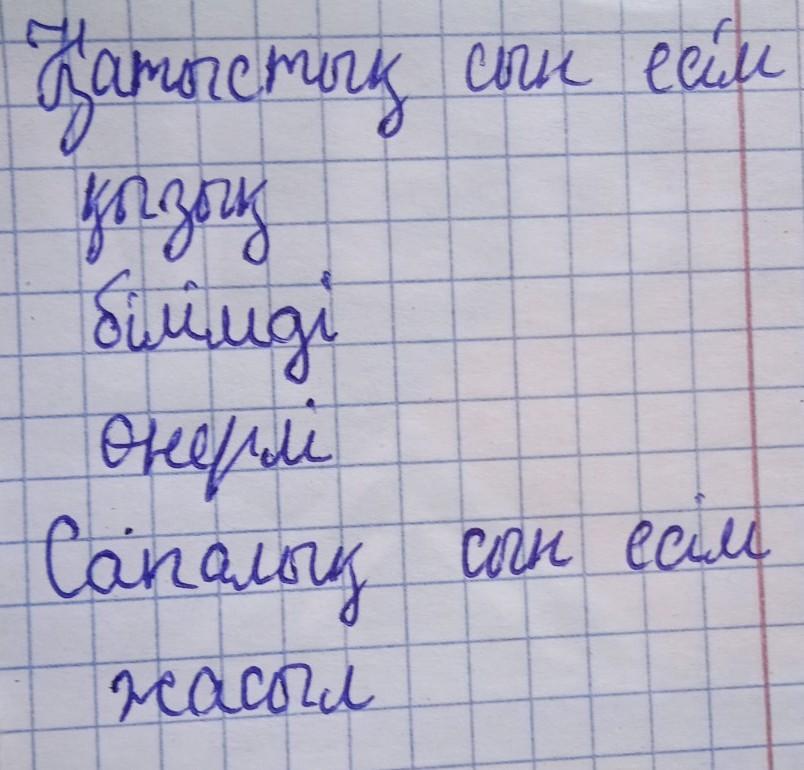 Қатыстық сын есім
қызық
білімді
өнерлі
Сапалық сын есім
жасыл